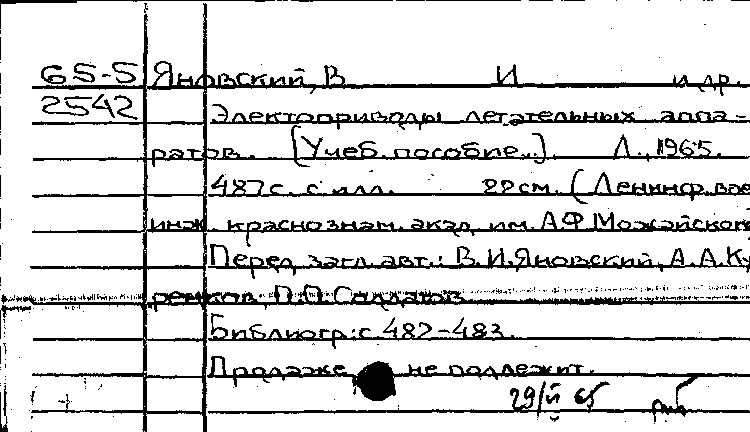 65-5 Яновский, В И и др.
2542 Электроприводы летательных аппа-
ратов. [Учеб. пособие.]. Л., 1965.
487с. с илл. 22см. (Ленингр. вое
инж. краснознам. акад. им. А.Ф.Можайского
Перед загл. авт.: В.И.Яновский, А.А.Ку
ренков, П.П.Солдатов
Библиогр: с. 482-483.
Продаже не подлежит.
29/II 65